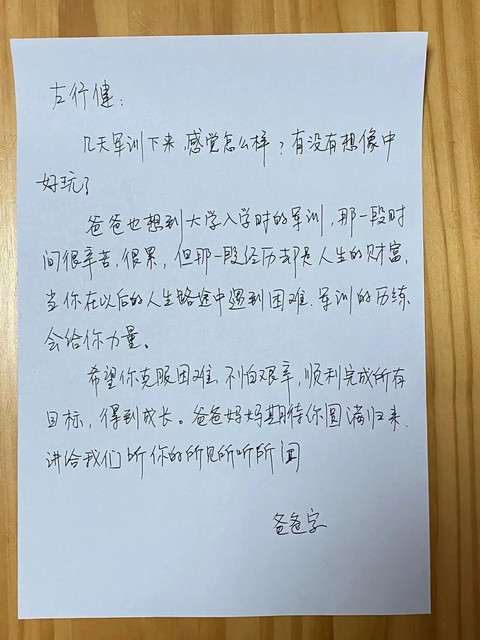 左行健：
几天军训下来，感觉怎么样？有没有想像中
好玩？
爸爸也想到大学入学时的军训，那一段时
间很辛苦，很累，但那一段经历却是人生的财富，
当你在以后的人生路途中遇到困难，军训的历练
会给你力量。
希望你克服困难，不怕艰辛，顺利完成所有
目标，得到成长。爸爸妈妈期待你圆满归来，
讲给我们听你的所见所听所闻
爸爸字